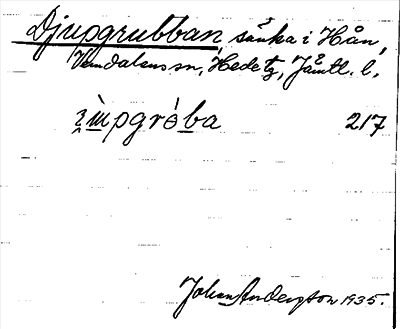 Djupgrubban sänka i Hån,
Vemdalens sn, Hede tg, Jämtl. l.
217
Johan Anderzton 1935.